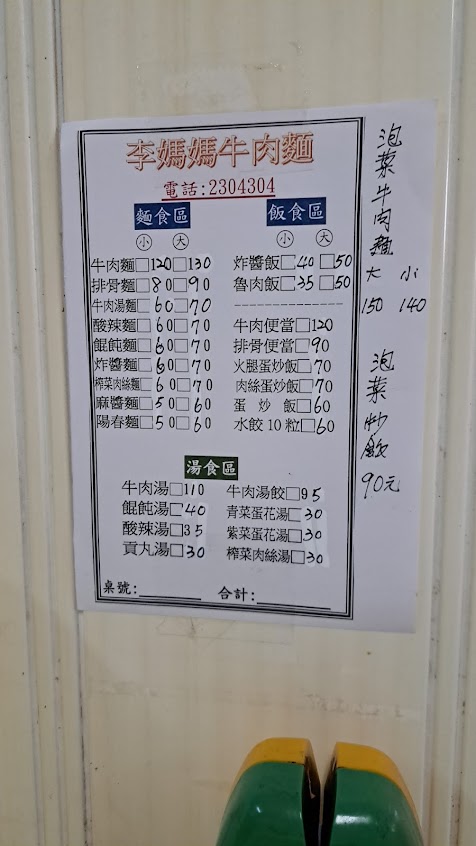 李媽媽牛肉麵
電話:2304304
麵食區
小 大
牛肉麵□120□130
排骨麵□80□90
牛肉湯麵□60□70
酸辣麵□60□70
餛飩麵□60□70
炸醬麵□60□70
榨菜肉絲麵□60□70
麻醬麵□50□60
陽春麵□50□60
飯食區
小 大
炸醬飯□40□50
魯肉飯□35□50
牛肉便當□120
排骨便當□90
火腿蛋炒飯□70
肉絲蛋炒飯□70
蛋 炒 飯□60
水餃10粒□60
湯食區
牛肉湯□110
餛飩湯□40
酸辣湯□35
貢丸湯□30
牛肉湯餃□95
青菜蛋花湯□30
紫菜蛋花湯□30
榨菜肉絲湯□30
桌號:
合計:
泡菜牛肉麵
大 小
150 140
泡菜炒飯
90元